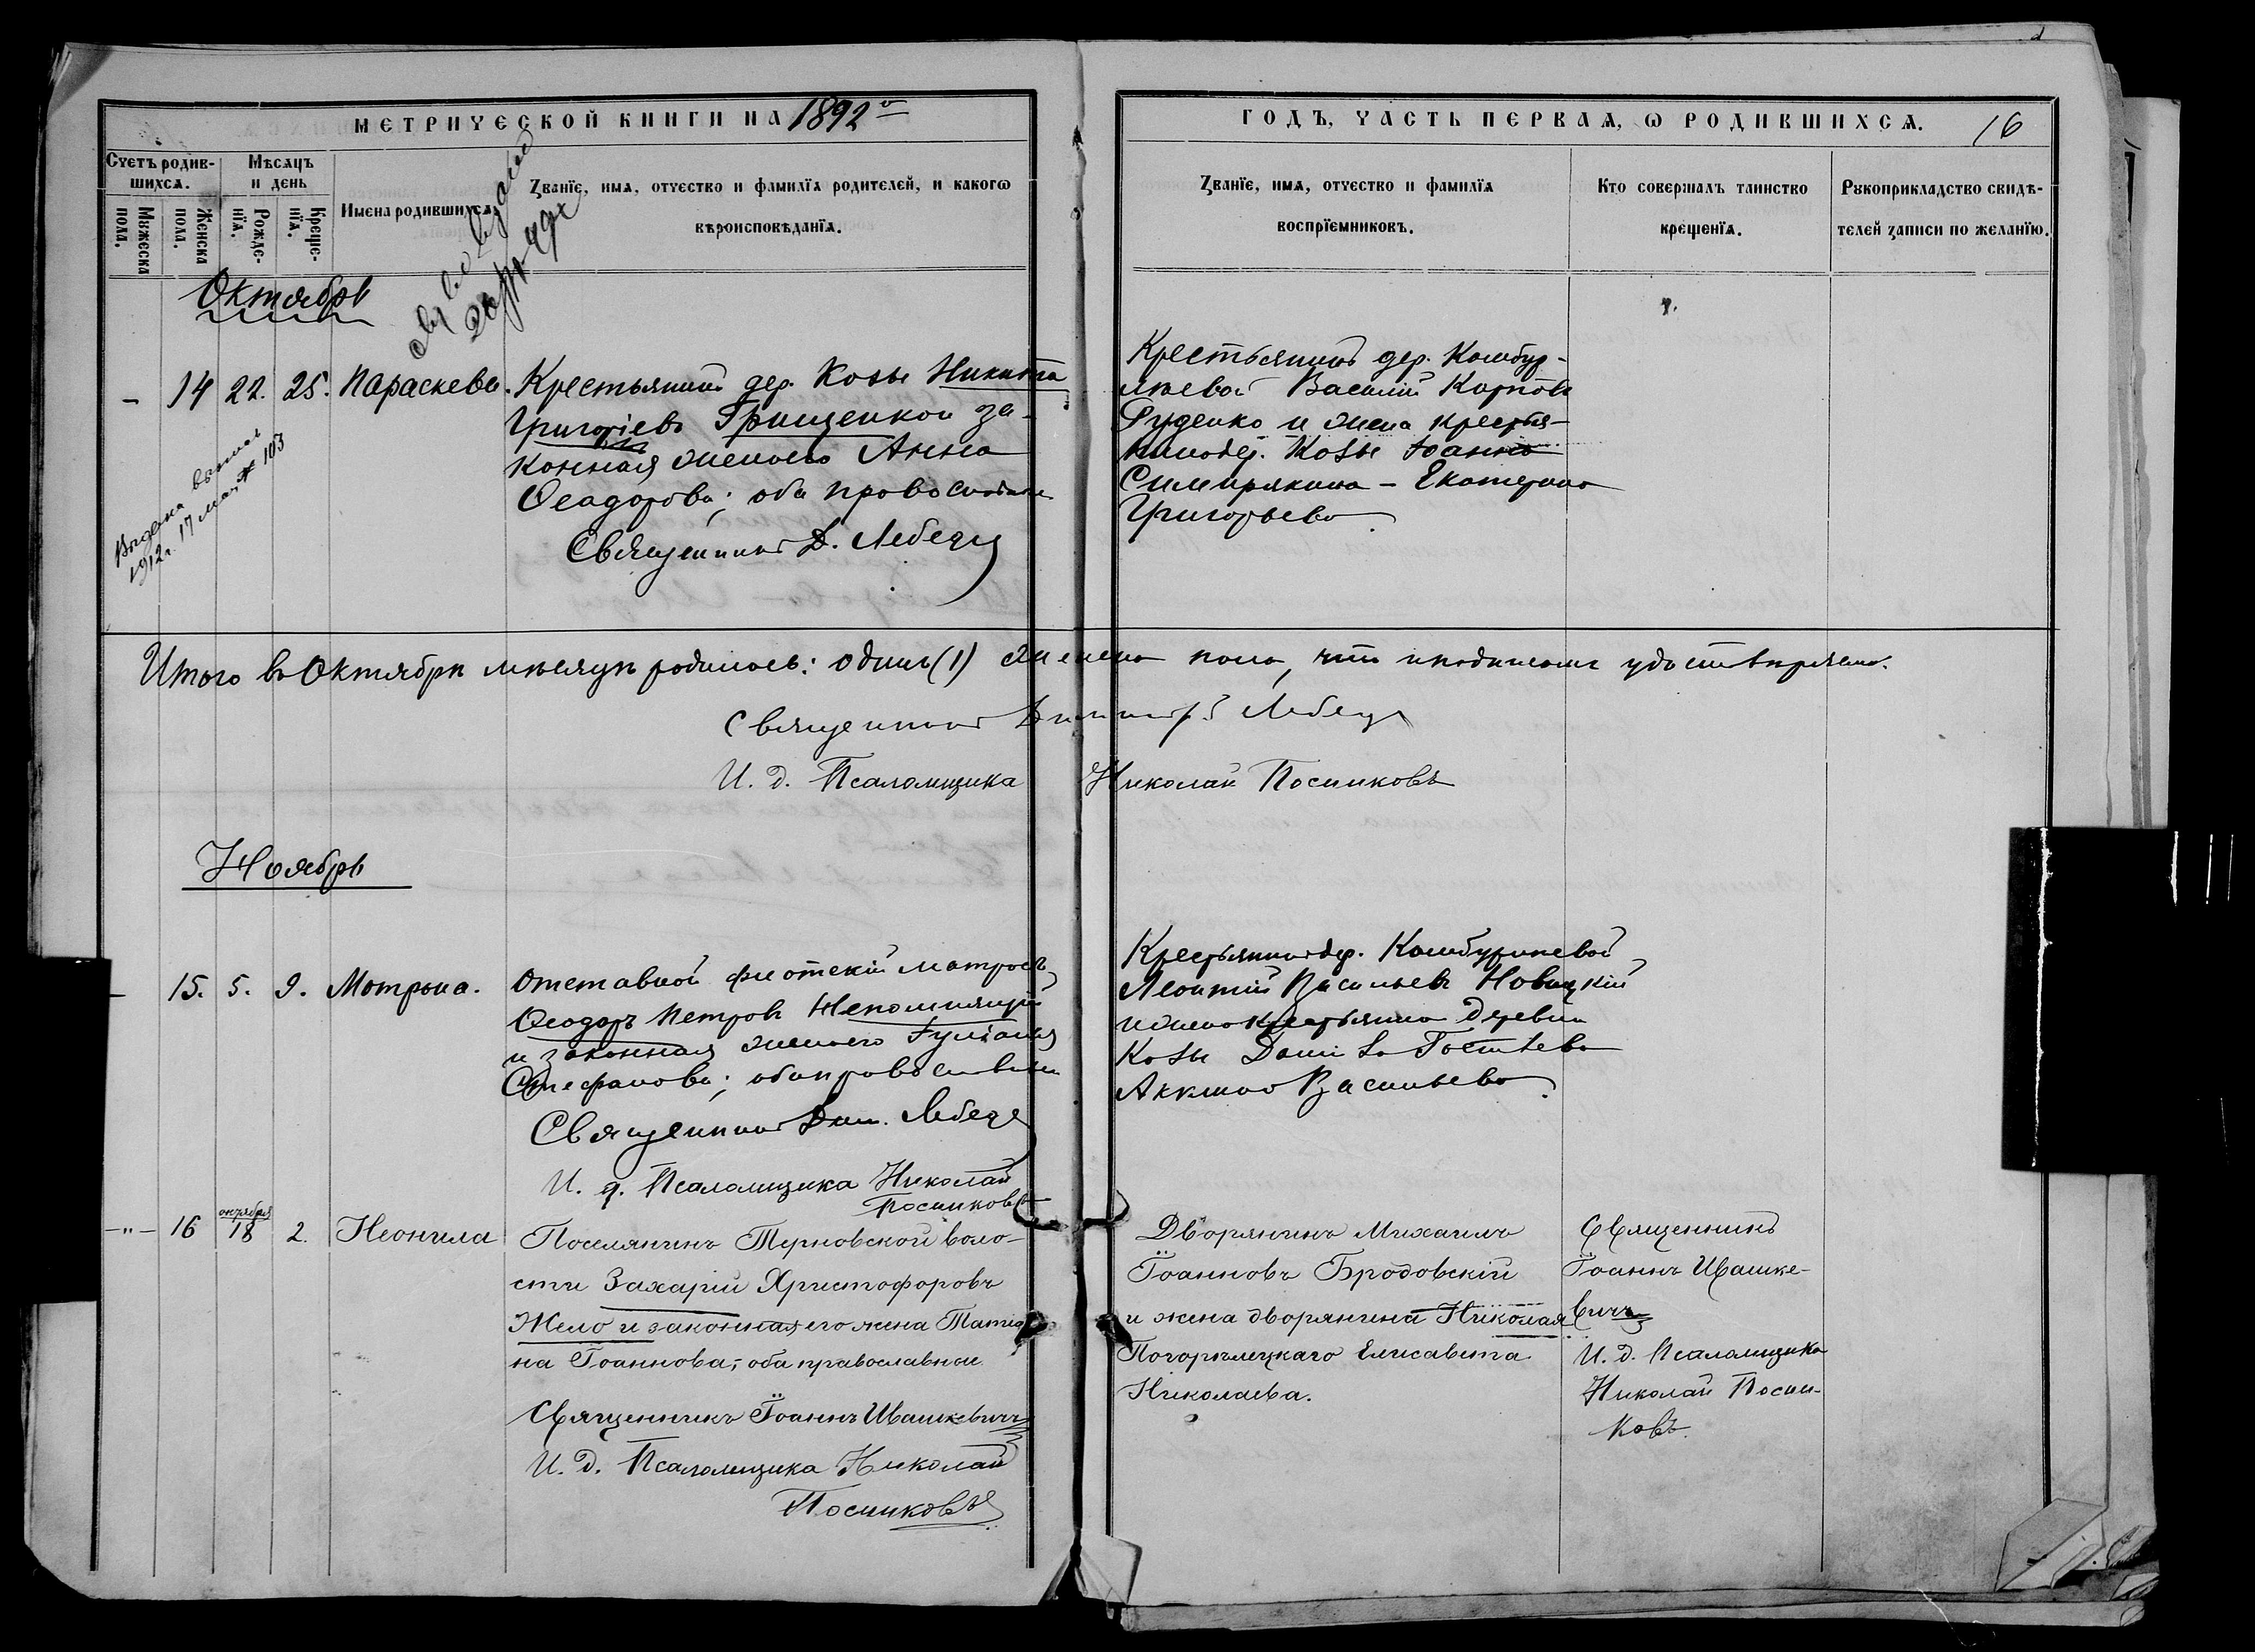 МЕТРИЧЕСКОЙ КНИГИ НА 1892й
ГОДЪ, ЧАСТЬ ПЕРВАЯ, Ѡ РОДИВШИХСЯ. 16
Счетъ родив-
шихся.
Мѣсяцъ
и день
Мꙋжеска
пола.
Женска
пола.
Рожде-
нїя.
Креще-
нїя.
Имена родившихся
Званїе, имя, отчество и фамилїя родителей, и какогѡ
вѣроисповѣданїя.
Званїе, имя, отчество и фамилїя
воспрїемниковъ.
Кто совершалъ таинство
крещенїя.
Рꙋкоприкладство свидѣ-
телей записи по желанїю.
Октябрь
– 14 22. 25. Параскева.
Крестьянинъ дер. Козы Никита
Григоріевъ Грищенко и за-
конная жена его Анна
Ѳеодорова; оба православные
Священникъ Д. Лебедь
Крестьянинъ дер. Камбур-
лѣевой Василій Карповъ
Руденко и жена крестья-
нина дер. Козы Іоанна
Екатерина
Григорьева.
Выдана
1912 г. 17 мая № 103
Итого въ Октябрѣ мѣсяцѣ родилось: одинъ (1) женска пола, что и подписомъ удостовѣряемъ.
Священникъ Димитрій Лебедь
И. д. Псаломщика Николай Посниковъ
Ноябрь
– 15. 5. 9. Мотрона.
Отставной флотскій матросъ
Ѳеодоръ Петровъ Непомнящій
и законная жена его Іуліанія
Стефанова; оба православные
Священникъ Дим. Лебедь
И. д. Псаломщика Николай
Посниковъ
Крестьянинъ дер. Камбурлѣевой
Леонтій Васильевъ Новицкій
и жена крестьянина деревни
Козы
Васильева.
–"– 16 октября 18 2. Неонила
Поселянинъ Терновской воло-
сти Захарій Христофоровъ
Жело и законная его жена Татiа-
на Іоаннова; оба православные
Священникъ Іоаннъ Ивашкевичъ
И. д. Псаломщика Николай
Посниковъ
Дворянинъ Михаилъ
Іоанновъ Бродовскій
и жена дворянина Николая
Погорѣлецкаго Елисавета
Николаева.
Священникъ
Іоаннъ Ивашке-
вичъ
И. д. Псаломщика
Николай Посни-
ковъ.